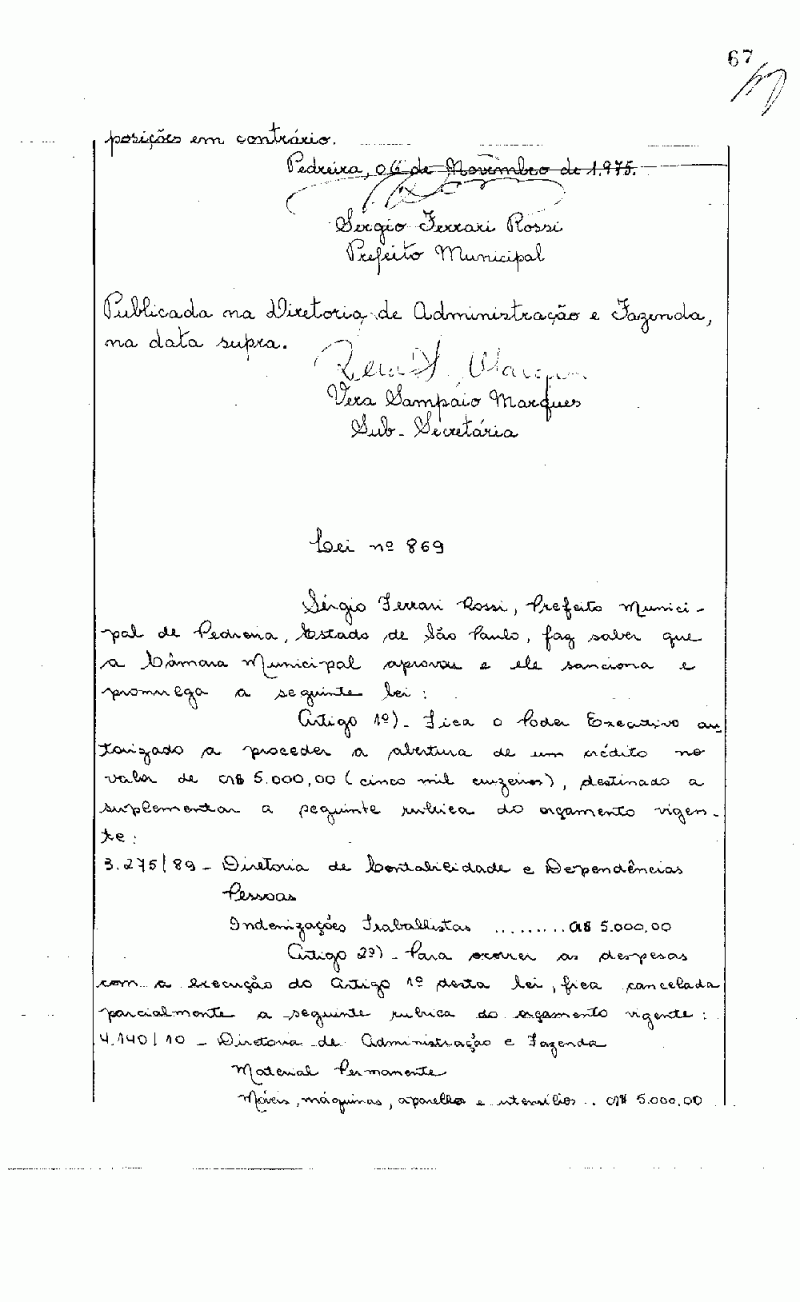 67
posições em contrário.
Pedreira, 06 de Novembro de 1.975.
Sérgio Ferrari Rossi
Prefeito Municipal
Publicada na Diretoria de Administração e Fazenda,
na data supra.
Vera Sampaio Marques
Sub-Secretária
Lei nº 869
Sérgio Ferrari Rossi, Prefeito Munici-
pal de Pedreira, Estado de São Paulo, faz saber que
a Câmara Municipal aprovou e ele sanciona e
promulga a seguinte lei:
Artigo 1º)- Fica o Poder Executivo au
torizado a proceder a abertura de um crédito no
valor de CR$ 5.000,00 (cinco mil cruzeiros), destinado a
suplementar a seguinte rubrica do orçamento vigen-
te:
3.275/89 - Diretoria de Contabilidade e Dependências
Pessoas
Indenizações Trabalhistas ......... CR$ 5.000,00
Artigo 2º)- Para ocorrer as despesas
com a execução do Artigo 1º desta lei, fica cancelada
parcialmente a seguinte rubrica do orçamento vigente:
4.140/10 - Diretoria de Administração e Fazenda
Material Permanente
Móveis, máquinas, aparelhos e utensílios .. CR$ 5.000,00